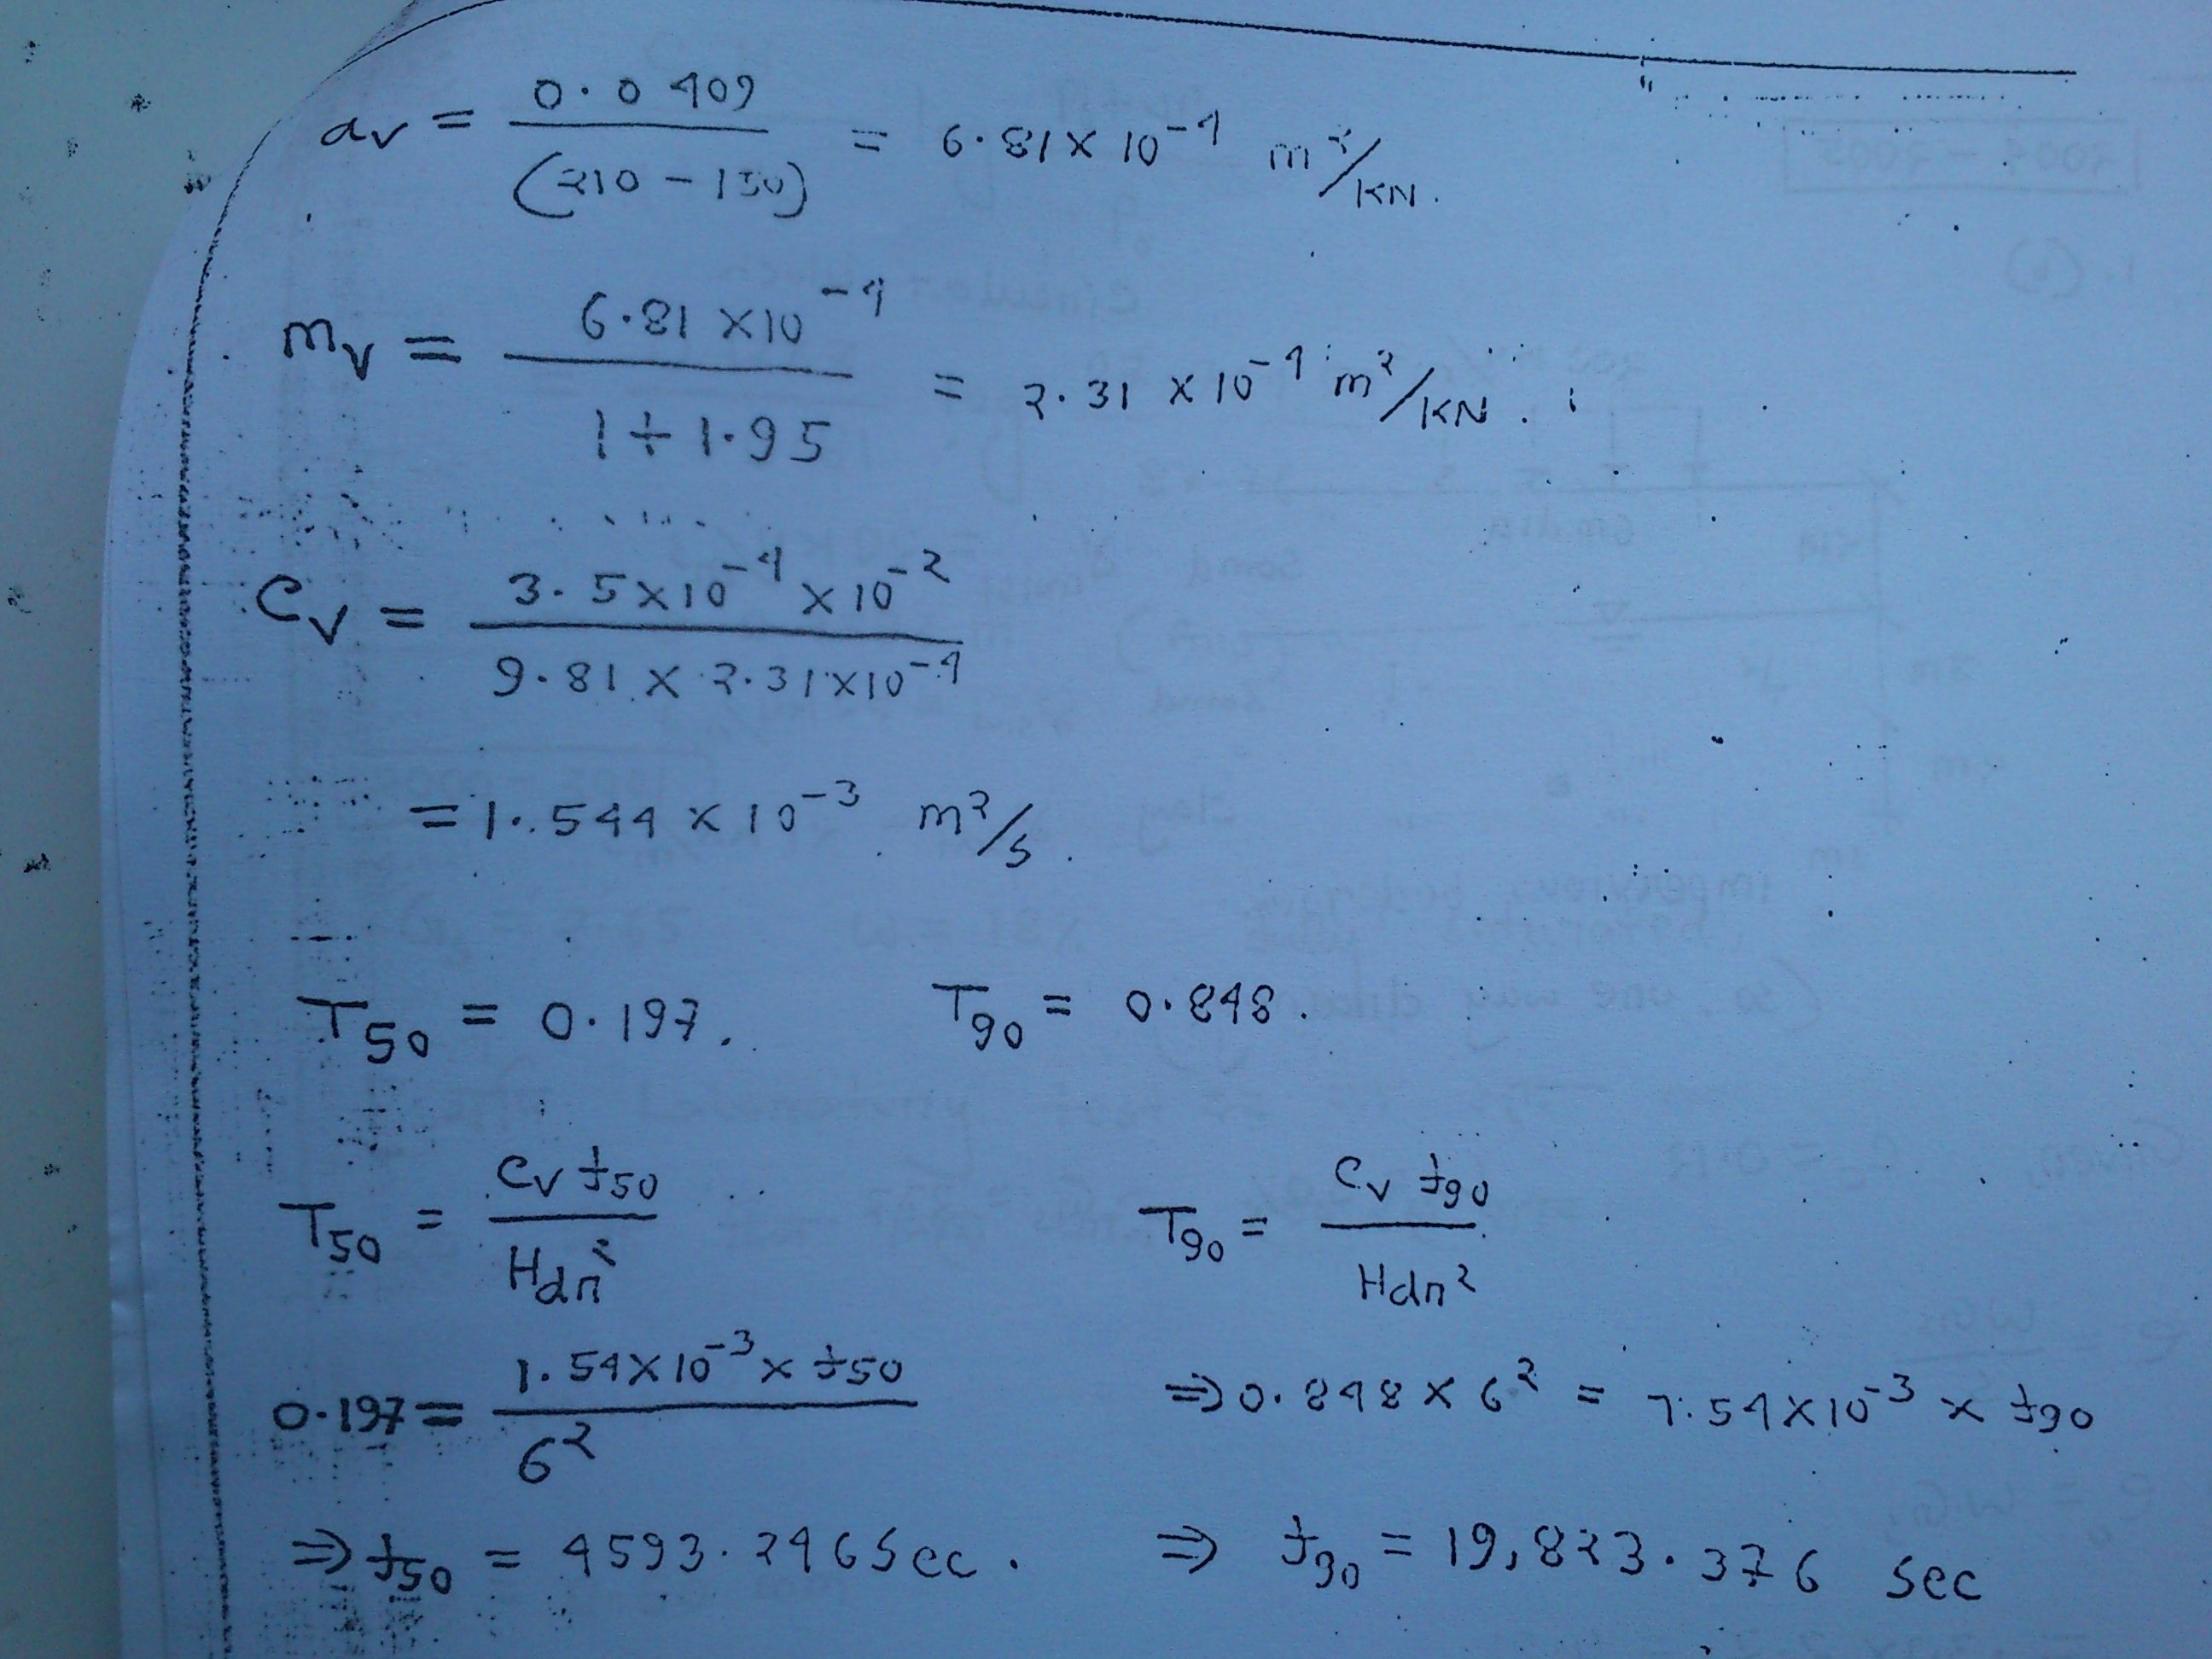 av = 0.0409 / (210 - 150) = 6.81 × 10⁻⁴ m²/KN.
mv = 6.81 × 10⁻⁴ / 1 + 1.95 = 2.31 × 10⁻⁴ m²/KN.
Cv = 3.5 × 10⁻⁴ × 10⁻² / 9.81 × 2.31 × 10⁻⁴
= 1.544 × 10⁻³ m²/s.
T50 = 0.197. T90 = 0.848.
T50 = Cv t50 / Hdr² T90 = Cv t90 / Hdr²
0.197 = 1.54 × 10⁻³ × t50 / 6² ⇒ 0.848 × 6² = 1.54 × 10⁻³ × t90
⇒ t50 = 4593.246 Sec. ⇒ t90 = 19,823.376 Sec